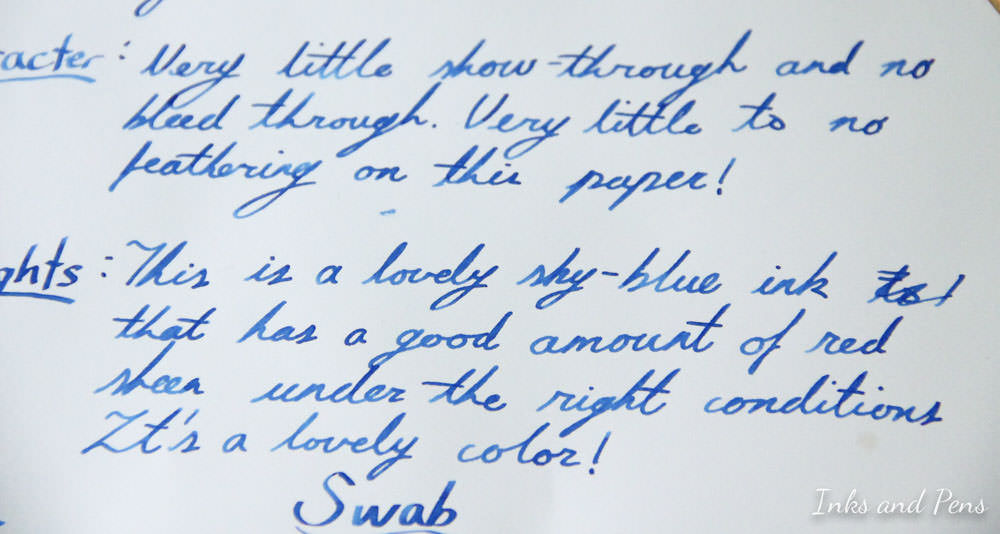 racter: Very little show-through and no
bleed through. Very little to no
feathering on this paper!
ghts: This is a lovely sky-blue ink
that has a good amount of red
sheen under the right conditions
It's a lovely color!
Swab
Inks and Pens